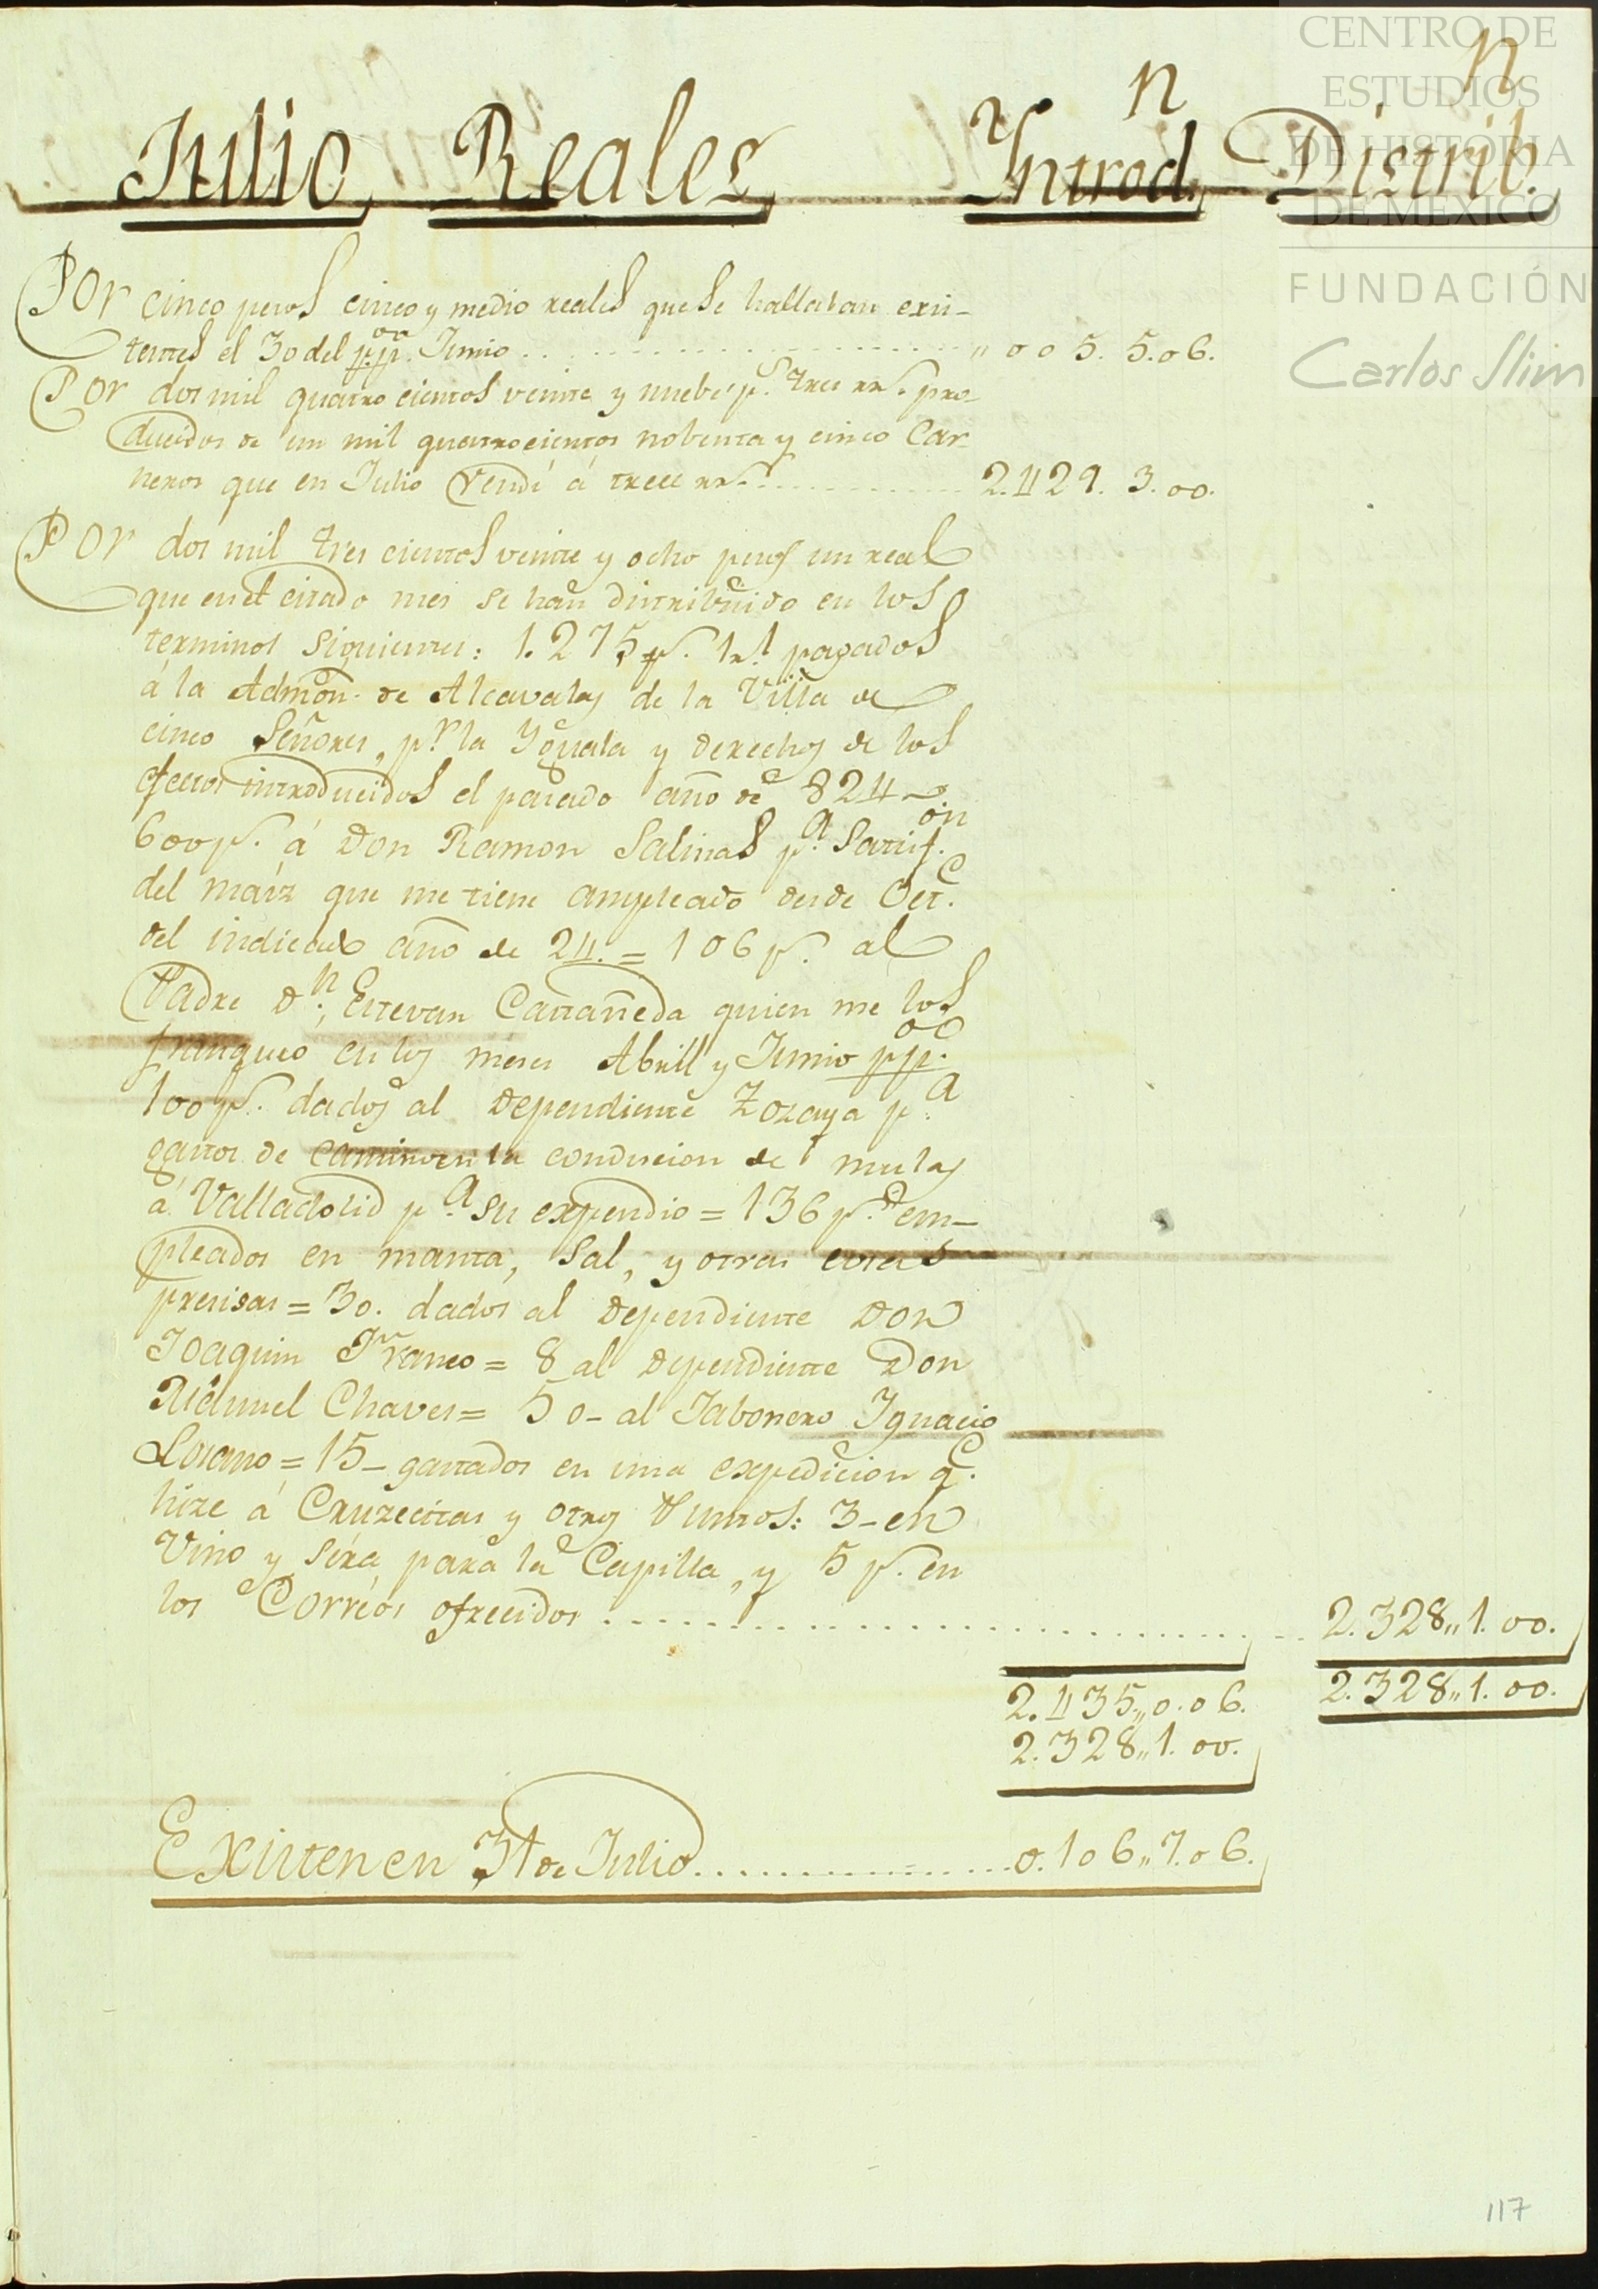 CENTRO DE
ESTUDIOS
DE HISTORIA
DE MÉXICO
FUNDACIÓN
Carlos Slim
Julio, Reales, Yntrod.n Distrib.n
Por cinco pesos cinco y medio reales que se hallaban exis-
tentes el 30 del p.p.do Junio .. 005. 5.06.
Por dos mil quatro cientos veinte y nuebe p.s tres rr.s pro-
ducidos de un mil quatrocientos nobenta y cinco Car-
neros que en Julio vendí á trece rr.s 2.429. 3.00.
Por dos mil tres cientos veinte y ocho pesos un real
que en el citado mes se han distribuido en los
terminos siguientes: 1.275 p.s 1 r.l pagados
á la Admon. de Alcavalas de la Villa de
cinco Señores, p.r la Yguala y derechos de los
efectos introducidos el pasado año de 824
600 p.s á Don Ramon Salinas p.a Satisf.on
del maiz que me tiene ampleado desde Oct.e
del indicado año de 24. = 106 p.s al
Padre D.n Estevan Castañeda quien me los
franqueo en los meses Abrill y Junio p.p.
100 p.s dados al dependiente Zozaya p.a
gastos de camino en la conducion de mulas
á Valladolid p.a su expendio = 136 p.s em-
pleados en manta, Sal, y otras cosas
precisas = 30. dados al dependiente Don
Joaquin Franco = 8 al dependiente Don
Manuel Chaves = 50 - al Jabonero Ygnacio
Losano = 15 - gastados en una expedicion q.e
hize á Cruzecitas y otros Puntos: 3 - en
Vino y Sera para la Capilla, y 5 p.s en
los Correos ofrecidos .. 2.328,, 1. 00.
2.435,, 0.06. 2.328,, 1. 00.
2.328,, 1. 00.
Existen en 31 de Julio .. 0.106,, 7.06.
117